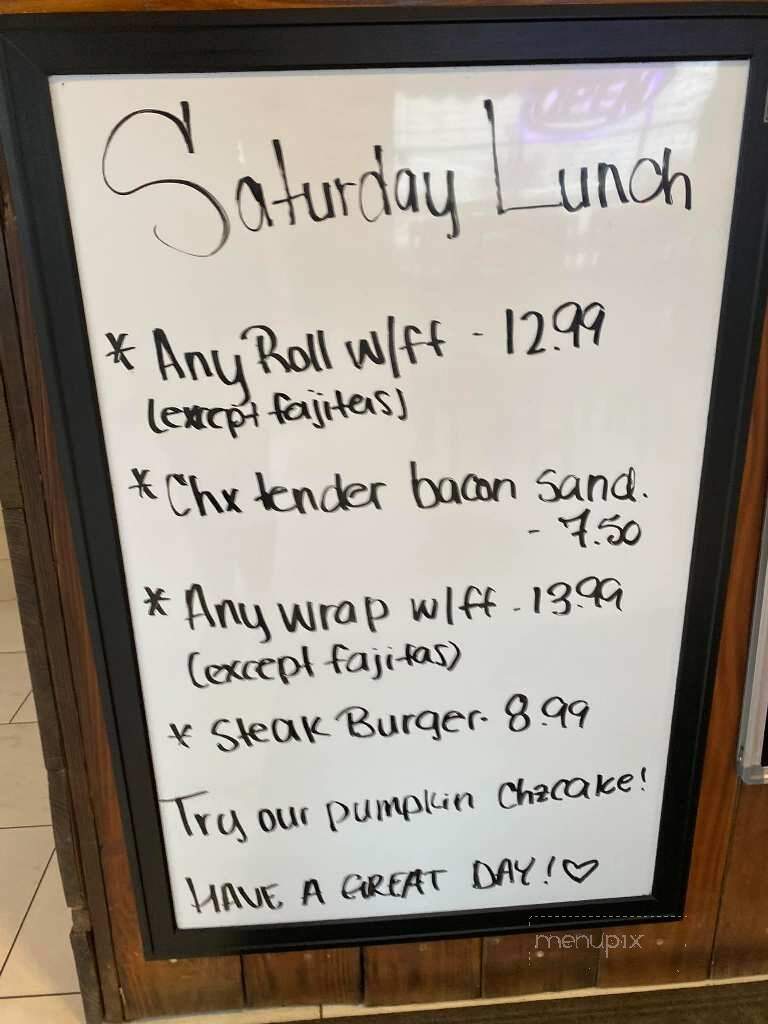 OPEN
Saturday Lunch
* Any Roll w/ff - 12.99
(except fajitas)
* Chx tender bacon sand.
- 7.50
* Any wrap w/ff - 13.99
(except fajitas)
* Steak Burger - 8.99
Try our pumpkin chzcake!
HAVE A GREAT DAY! ♡
menupix